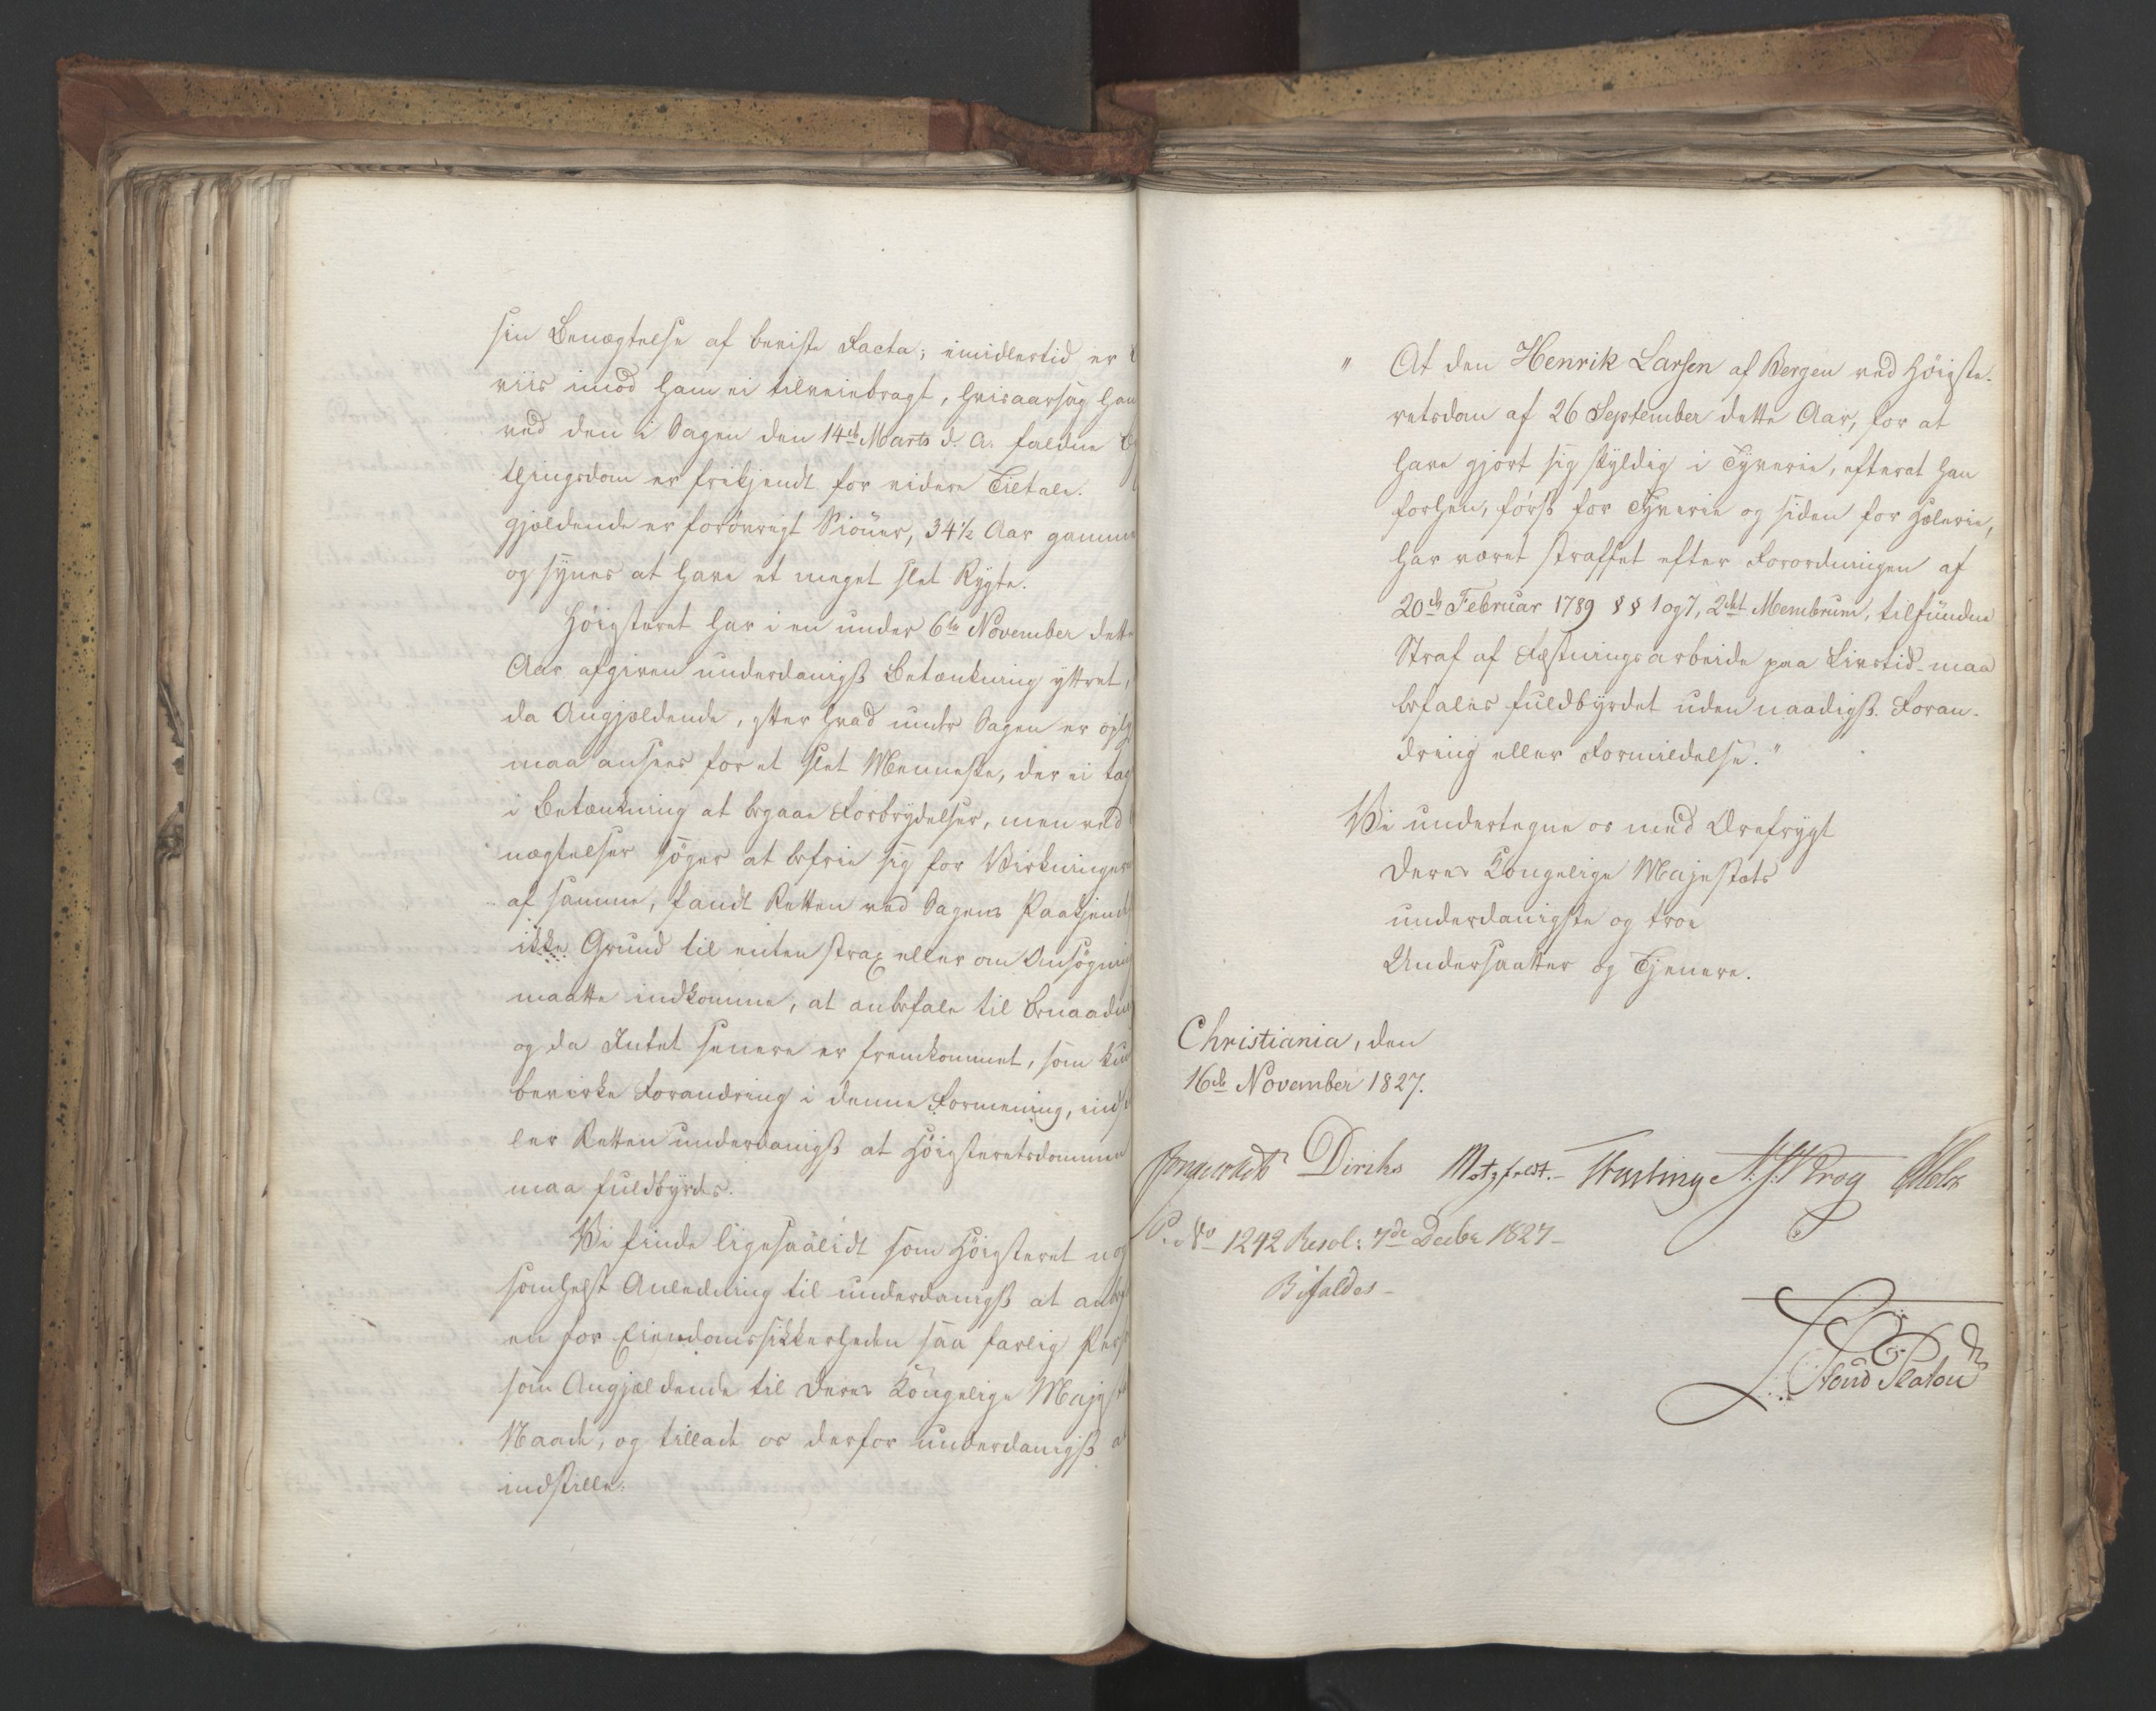 sin Benægtelse af beviste Facta; imidlertid er
viis imod ham ei tilveiebragt, hvisaarsag han
ved den i Sagen den 14de Marts d. A. faldne
thingsdom er frikjendt for videre Tiltale.
gjældende er forövrigt Pioneer, 34½ Aar gamme
og synes at have et meget slet Rygte.
Höigsteret har i en under 6te November dette
Aar afgiven underdanigst Betænkning yttret,
da Angjældende, efter hvad under Sagen er oply
maa ansees for et slet Menneske, der ei tag
i Betænkning at begaae Forbrydelser, men ved
nægtelser söger at befrie sig for Virkninger
af samme, fandt Retten ved Sagens Paakjend
ikke Grund til enten strax eller om Ansögning
maatte indkomme, at anbefale til Benaadn
og da Intet senere er fremkommet, som kun
bevirke Forandring i denne Formening, indst
ler Retten underdanigst at Höigsteretsdommen
maa fuldbyrdes.
Vi finde ligesaalidt som Höigsteret nog
somhelst Anledning til underdanigst at anbef
en for Eiendomssikkerheden saa farlig Pers
som Angjældende til Deres Kongelige Majest
Naade, og tillade os derfor underdanigst a
indstille:
" At den Henrik Larsen af Bergen ved Höigste-
retsdom af 26 September dette Aar, for at
have gjort sig skyldig i Tyverie, efterat han
forhen, först for Tyverie og siden for Hæleri,
har været straffet efter Forordningen af
20de Februar 1789 §§ 1 og 7, 2det Membrum, tilfundne
Straf af Fæstningsarbeide paa Livstid maa
befales fuldbyrdet uden naadigst Foran-
dring eller Formildelse."
Vi undertegne os med Ærefrygt
Deres Kongelige Majestæts
underdanigste og troe
Undersaatter og Tjenere.
Christiania, den
16de November 1827.
Diriks Motzfeldt.- Krog Holst
P. No 1242 Resol: 7de Decbr 1827-
Bifaldes-